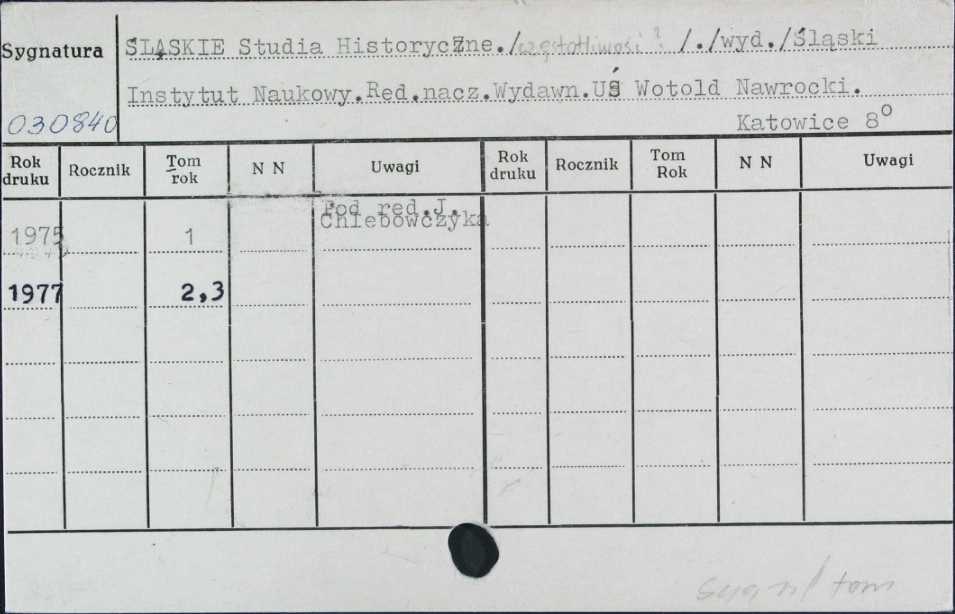 Sygnatura
ŚLĄSKIE Studia Historyczne./częstotliwość?/./wyd./Śląski
Instytut Naukowy.Red.nacz.Wydawn.UŚ Wotold Nawrocki.
030840
Katowice 8°
Rok druku Rocznik Tom rok N N Uwagi Rok druku Rocznik Tom Rok N N Uwagi
Pod red.J.
1975 1 Chlebowczyka
1977 2,3